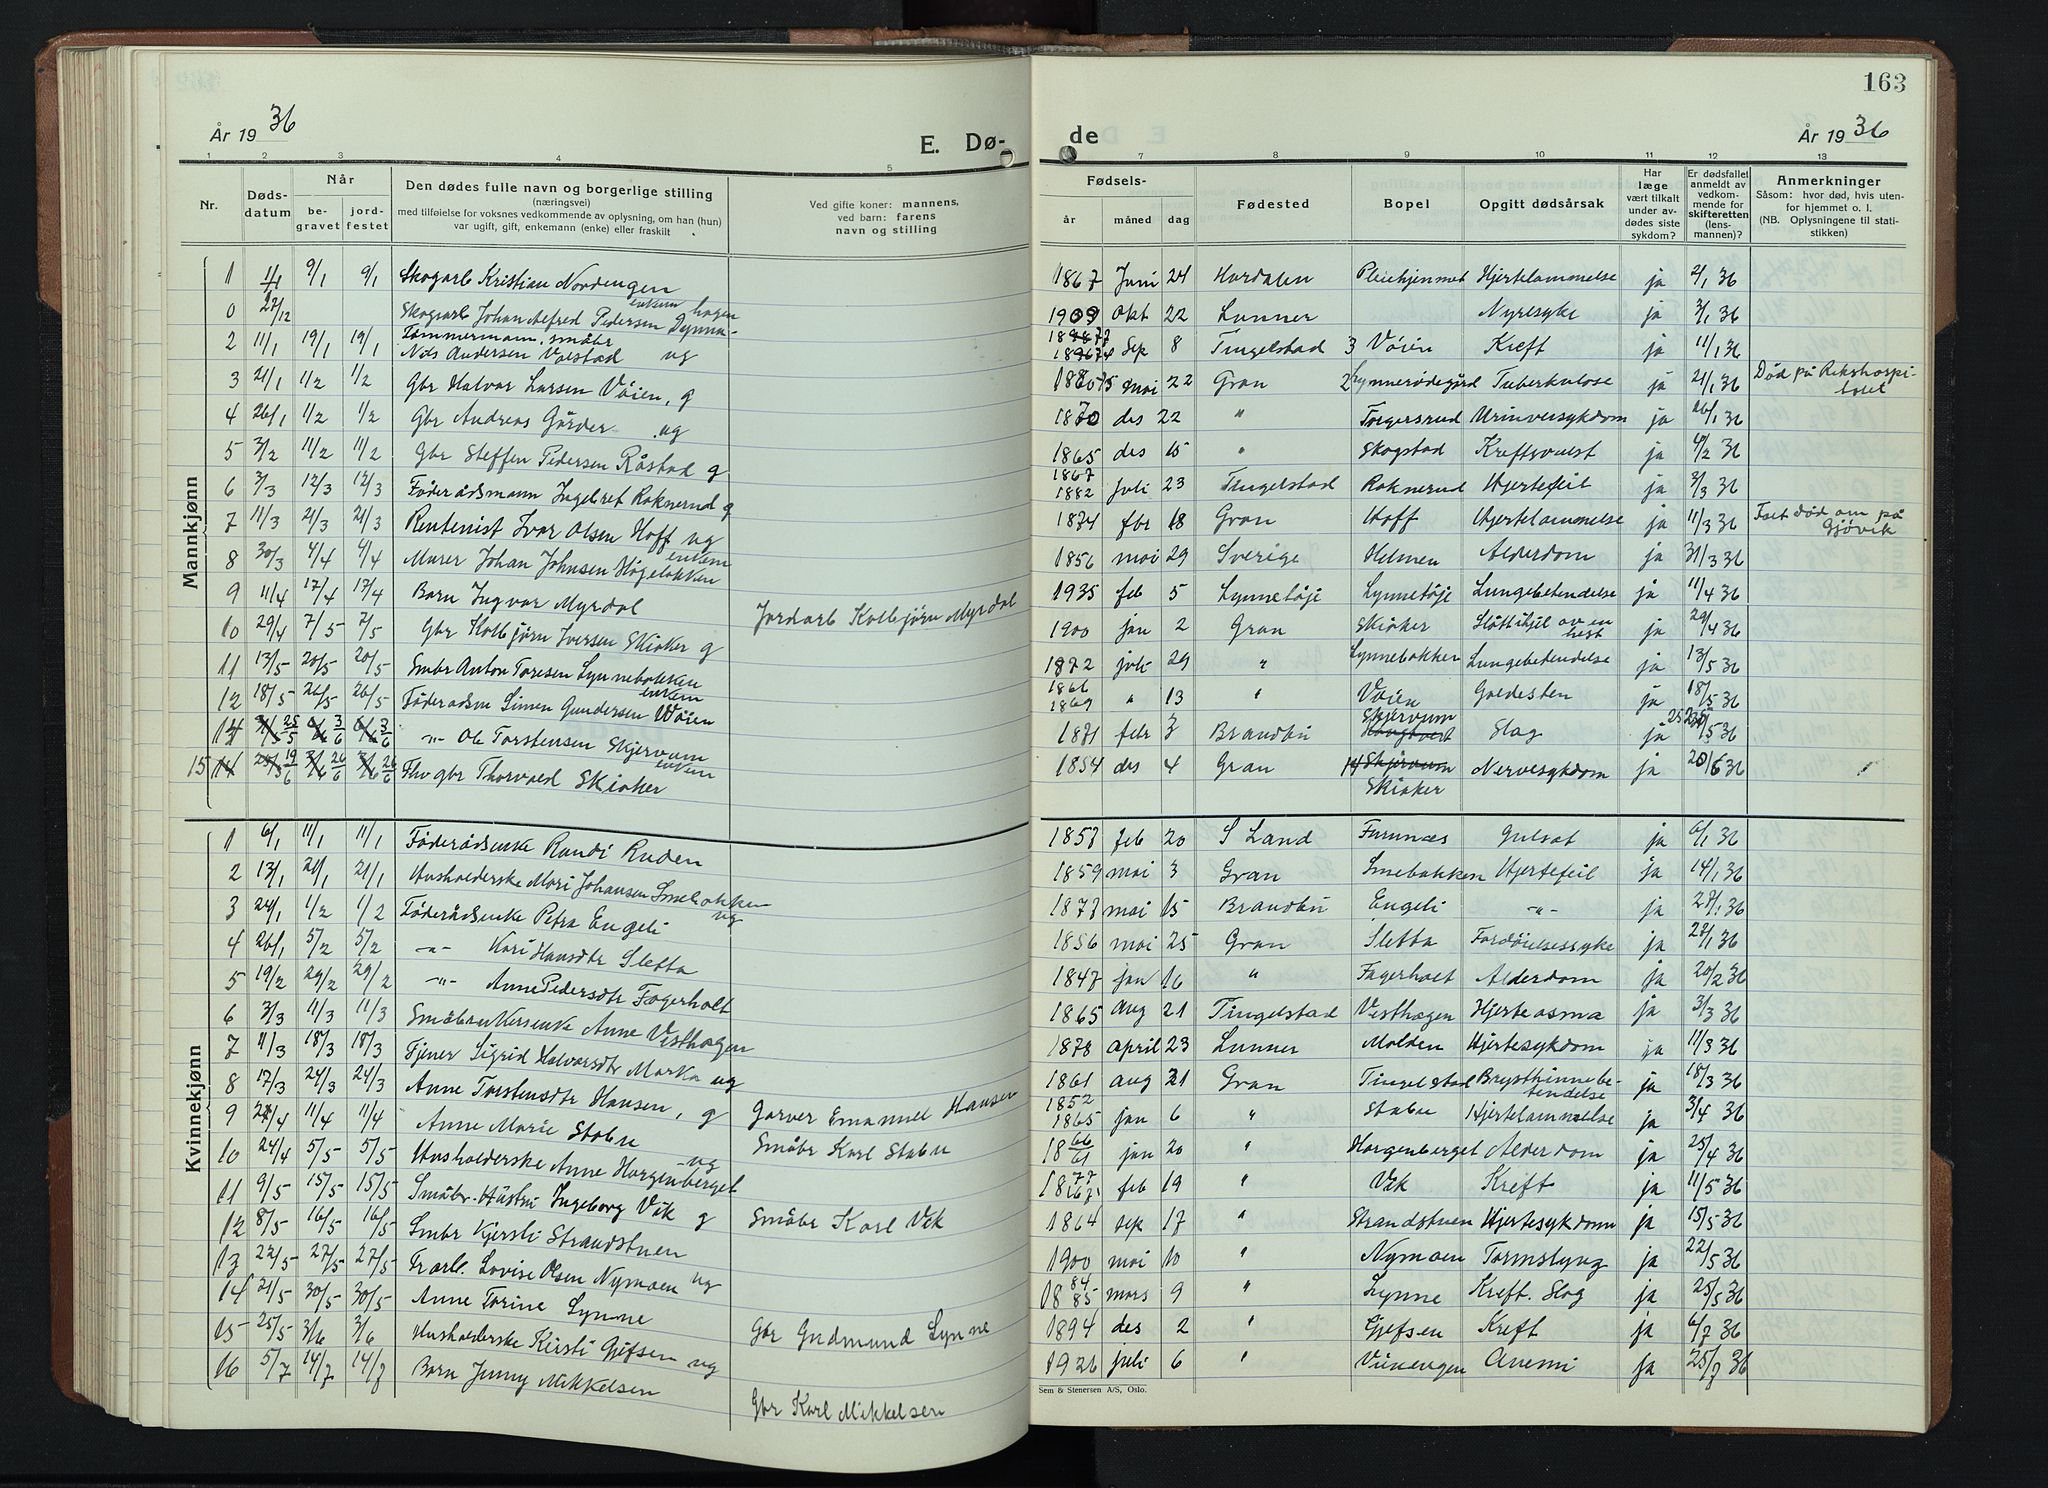 163
År 19 36
E. Dø-
de
År 19 36
1 2 3 4 5 7 8 9 10 11 12 13
Nr.
Døds-
datum
Når
be-
gravet
jord-
festet
Den dødes fulle navn og borgerlige stilling
(næringsvei)
med tilføielse for voksnes vedkommende av oplysning, om han (hun)
var ugift, gift, enkemann (enke) eller fraskilt
Ved gifte koner: mannens,
ved barn: farens
navn og stilling
Fødsels-
år måned dag
Fødested
Bopel
Opgitt dødsårsak
Har
læge
vært tilkalt
under av-
dødes siste
sykdom?
Er dødsfallet
anmeldt av
vedkom-
mende for
skifteretten
(lens-
mannen)?
Anmerkninger
Såsom: hvor død, hvis uten-
for hjemmet o. l.
(NB. Oplysningene til stati-
stikken)
Mannkjønn
1 1/1 9/1 9/1 Skogarb Kristian Nordengen 1867 Juni 24 Hordalen Pleiehjemmet Hjertelammelse ja 2/1 36
0 27/12 Skogarb Johan Alfred Pedersen 1909 Okt 22 Lunner Nyresyke ja 3/1 36
2 11/1 19/1 19/1 Tømmermann, småbr
Nils Andersen Volstad ug Sep 8 Tingelstad 3 Vøien Kreft ja 11/1 36
3 21/1 1/2 1/2 Gbr Halvor Larsen Vøien, g mai 22 Gran Lynnerødegård Tuberkulose ja 21/1 36 Død på Rikshospi-
talet
4 26/1 1/2 1/2 Gbr Andreas Gårder ug 1870 des 22 " Torgersrud Urinveisykdom ja 26/1 36
5 3/2 11/2 11/2 Gbr Steffen Pedersen Råstad g 1865 des 15 " Skogstad Kreftsvulst ja 4/2 36
6 3/3 12/3 12/3 Føderådsmann Ingebret Raknerud g 1867
1882 juli 23 Tingelstad Raknerud Hjertefeil ja 3/3 36
7 11/3 21/3 21/3 Rentenist Ivar Olsen Hoff ug 1874 fbr 18 Gran Hoff Hjertelammelse ja 11/3 36 Falt død om på
Gjøvik
8 30/3 4/4 4/4 Murer Johan Johnsen Høgelokken enkem 1856 mai 29 Sverige Helmen Alderdom ja 31/3 36
9 11/4 17/4 17/4 Barn Ingvar Myrdal Jordarb Kolbjørn Myrdal 1935 feb 5 Lynnetøje Lynnetøje Lungebetendelse ja 11/4 36
10 29/4 7/5 7/5 Gbr Kolbjørn Iversen Skiaker g 1900 jan 2 Gran Skiaker Slått ihjel av en
hest ja 29/4 36
11 13/5 20/5 20/5 Smbr Anton Toresen Lynnebakken 1872 juli 29 " Lynnebakken Lungebetendelse ja 13/5 36
12 18/5 26/5 26/5 Føderadsm Simen Gundersen Vøien enkem 1866
1869 " 13 " Vøien Galdesten ja 18/5 36
14 25/5 3/6 3/6 -"- Ole Torstensen Skjervum 1871 febr 3 Brandbu Skjervum Slag ja 36
15 19/6 26/6 26/6 Fhv gbr Thorvald Skiaker enkem 1854 des 4 Gran Skjervum
Skiaker Nervesykdom ja 20/6 36
Kvinnekjønn
1 6/1 11/1 11/1 Føderådsenke Randi Ruden 1857 feb 20 S Land Furunæs Gulsot ja 6/1 36
2 13/1 21/1 21/1 Husholderske Mari Johansen Smebakken ug 1859 mai 3 Gran Smebakken Hjertefeil ja 14/1 36
3 24/1 1/2 1/2 Føderådsenke Petra Engeli 1877 mai 15 Brandbu Engeli -"- ja 27/1 36
4 26/1 5/2 5/2 -"- Kari Hansdtr Sletta 1856 mai 25 Gran Sletta Fordøielsessyke ja 27/1 36
5 19/2 29/2 29/2 -"- Anne Pedersdtr Fagerholt 1847 jan 16 " Fagerholt Alderdom ja 20/2 36
6 3/3 11/3 11/3 Småbrukerenke Anne Vesthagen 1865 aug 21 Tingelstad Vesthagen Hjerteasma ja 3/3 36
7 11/3 18/3 18/3 Tjener Sigrid Halvorsdtr Marka ug 1878 april 23 Lunner Molden Hjertesykdom ja 11/3 36
8 17/3 24/3 24/3 Anne Torstensdtr Hansen, g Garver Emanuel Hansen 1861 aug 21 Gran Tingelstad Brysthinnebe-
tendelse ja 18/3 36
9 11/4 11/4 Anne Marie Stabu Småbr Karl Stabu 1852
1865 jan 6 " Stabu Hjertelammelse ja 3/4 36
10 24/4 5/5 5/5 Husholderske Anne Horgenberget ug 1866
61 jan 20 " Horgenberget Alderdom ja 25/4 36
11 9/5 15/5 15/5 Småbr. Hustru Ingeborg Vik g Småbr Karl Vik 1877 feb 19 " Vik Kreft ja 11/5 36
12 8/5 16/5 16/5 Smbr Kjersti Strandstuen 1864 sep 17 " Strandstuen Hjertesykdom ja 15/5 36
13 22/5 27/5 27/5 Frarb. Lovise Olsen Nymoen ug 1900 mai 10 " Nymoen Tarmslyng ja 22/5 36
14 21/5 30/5 30/5 Anne Torine Lynne Gbr Gudmund Lynne 1884
85 mars 9 " Lynne Kreft. Slag ja 25/5 36
15 25/5 3/6 3/6 Husholderske Kirsti Gjefsen ug 1894 des 2 " Gjefsen Kreft ja 6/7 36
16 5/7 14/7 14/7 Barn Jenny Mikkelsen Gbr Karl Mikkelsen 1926 juli 6 " Viinengen Anemi ja 25/7 36
Sem & Stenersen A/S, Oslo.